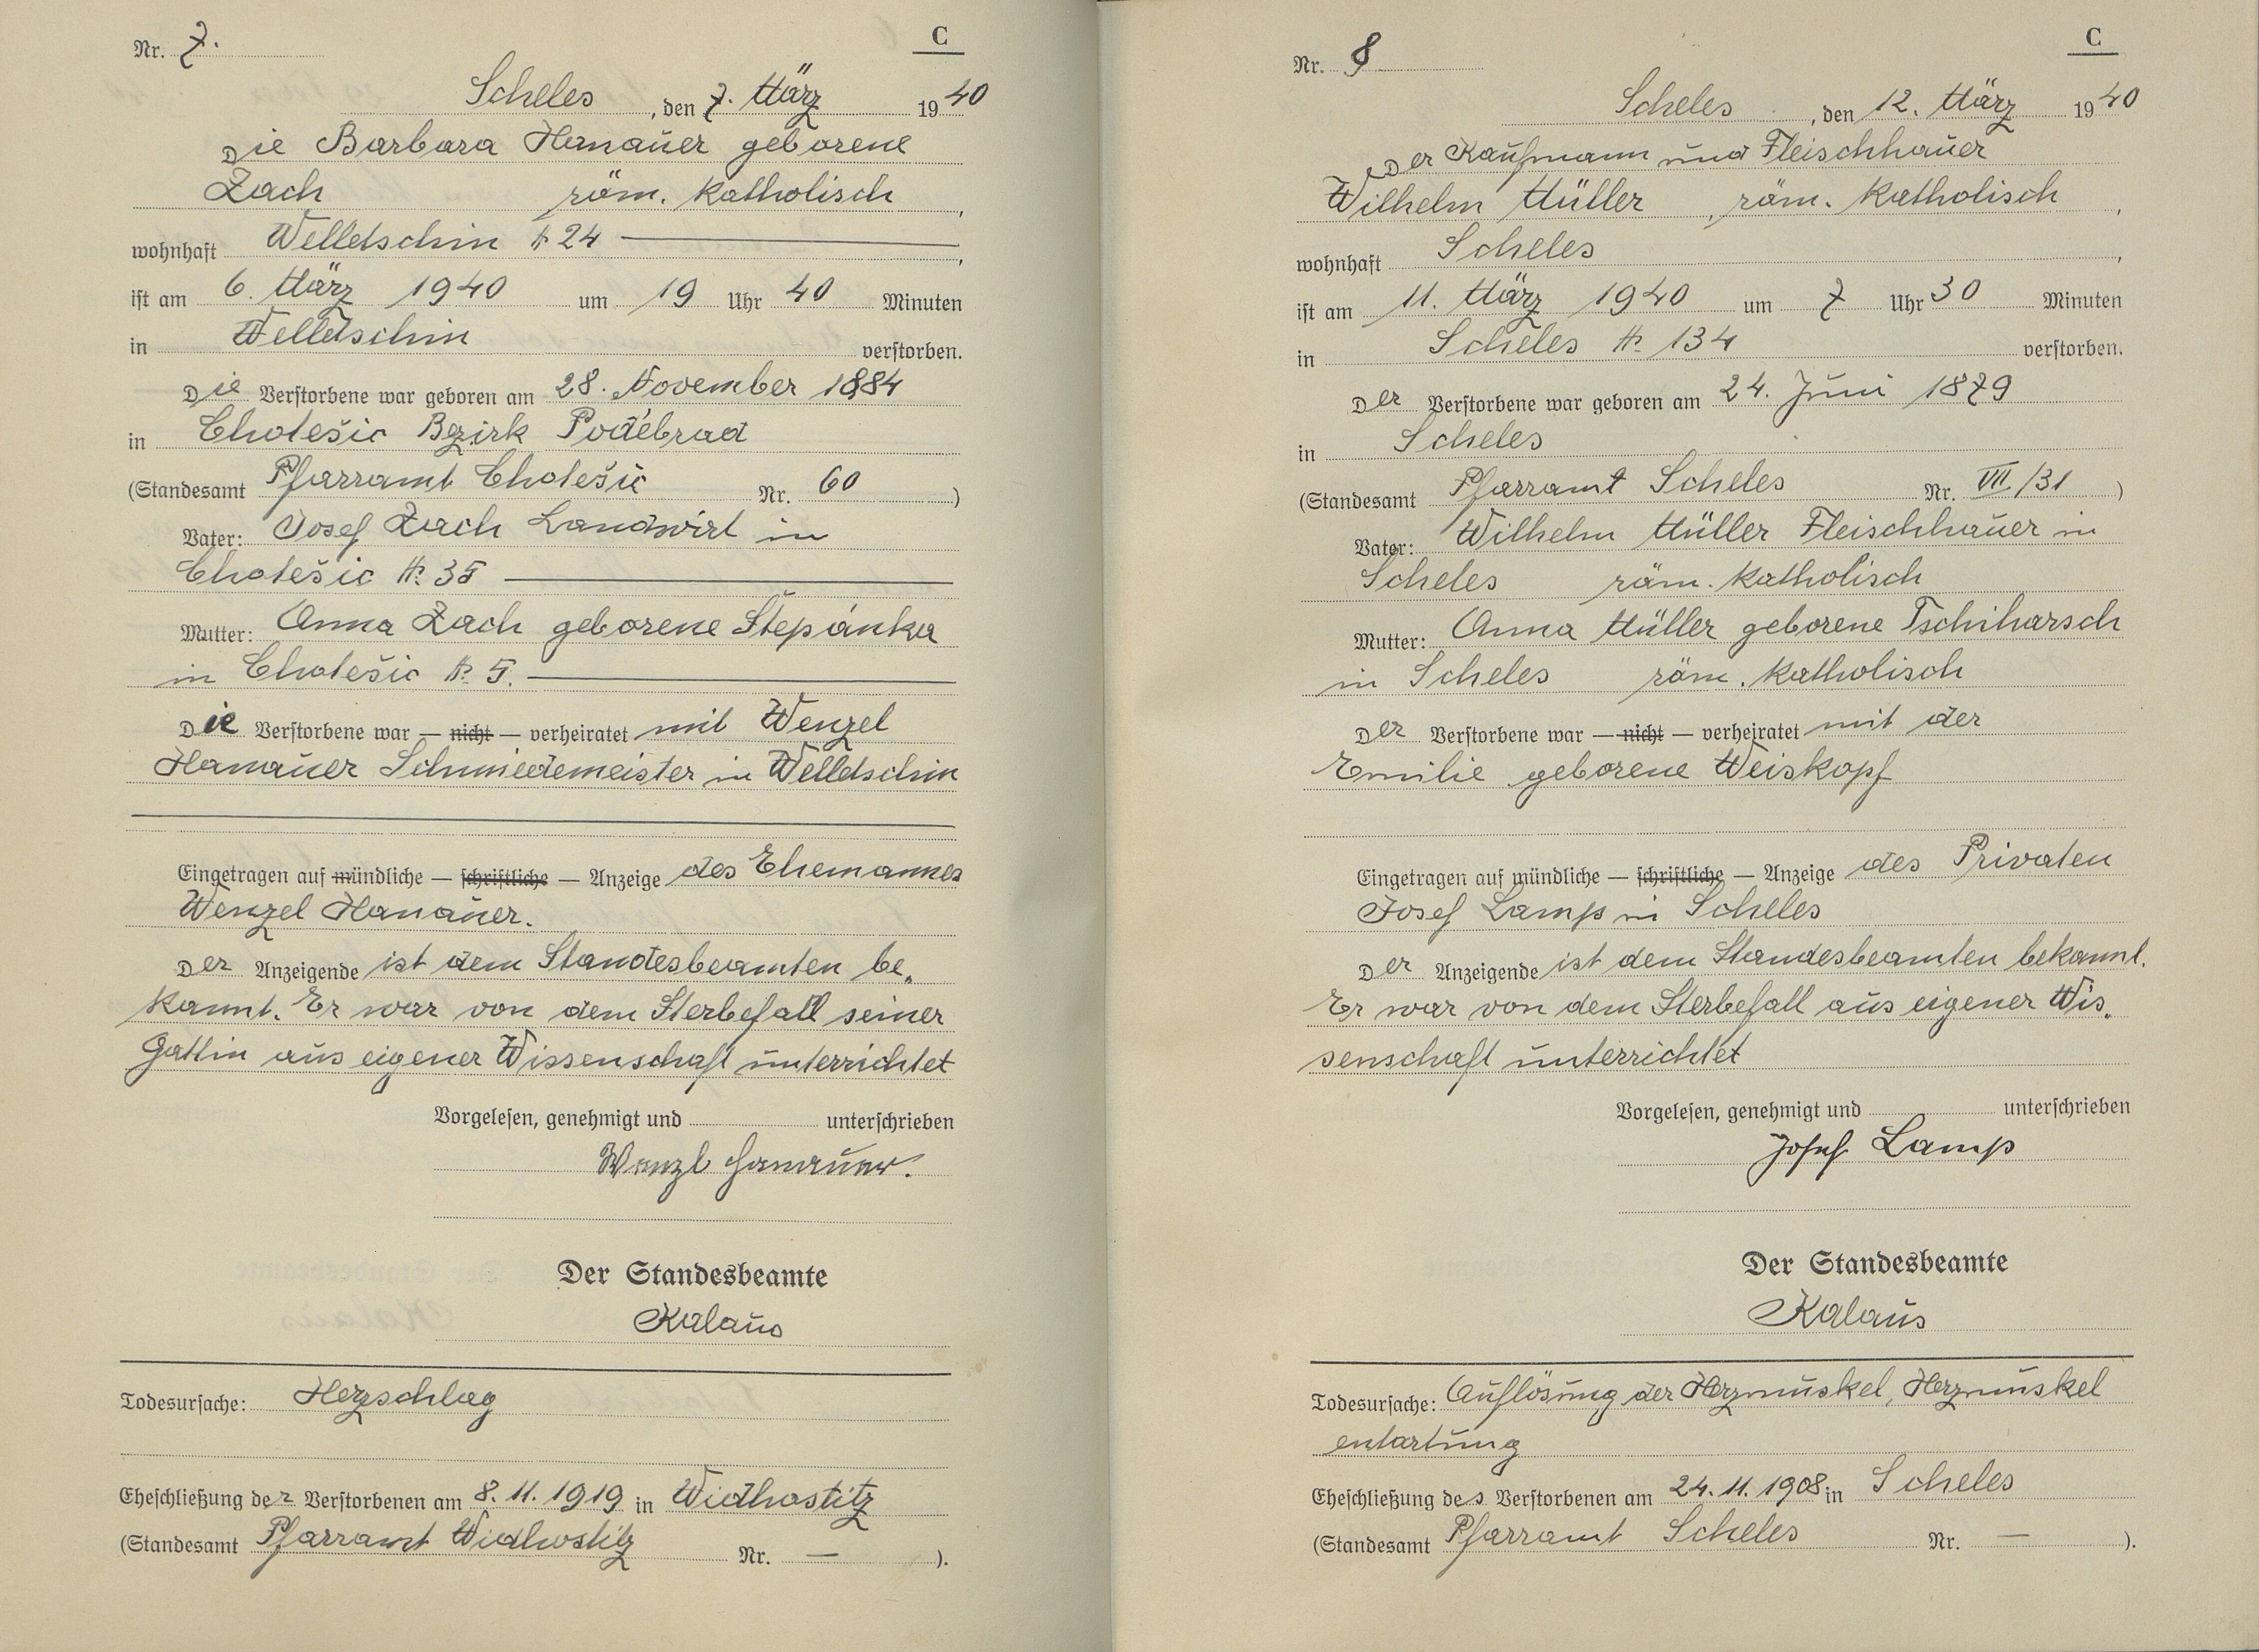 Nr. 7.
C
Scheles, den 7. März 1940
Die Barbara Hanauer geborene
Zach röm. katholisch,
wohnhaft Welletschin № 24,
ist am 6. März 1940 um 19 Uhr 40 Minuten
in Welletschin verstorben.
Die Verstorbene war geboren am 28. November 1884
in Chotěšic Bezirk Poděbrad
(Standesamt Pfarramt Chotěšic Nr. 60)
Vater: Josef Zach Landwirt in
Chotěšic № 35
Mutter: Anna Zach geborene Štěpánka
in Chotěšic № 5.
Die Verstorbene war — nicht — verheiratet mit Wenzel
Hanauer Schmiedemeister in Welletschin
Eingetragen auf mündliche — schriftliche — Anzeige des Ehemannes
Wenzel Hanauer.
Der Anzeigende ist dem Standesbeamten be„
kannt. Er war von dem Sterbefall seiner
Gattin aus eigener Wissenschaft unterrichtet
Vorgelesen, genehmigt und unterschrieben
Wenzl Hanauer.
Der Standesbeamte
Kalaus
Todesursache: Herzschlag
Eheschließung der Verstorbenen am 8.11.1919 in Widhostitz
(Standesamt Pfarramt Widhostitz Nr. — ).
Nr. 8
C
Scheles, den 12. März 1940
Der Kaufmann und Fleischhauer
Wilhelm Müller, röm. katholisch,
wohnhaft Scheles,
ist am 11. März 1940 um 7 Uhr 30 Minuten
in Scheles № 134 verstorben.
Der Verstorbene war geboren am 24. Juni 1879
in Scheles
(Standesamt Pfarramt Scheles Nr. VII/31)
Vater: Wilhelm Müller Fleischhauer in
Scheles röm. katholisch
Mutter: Anna Müller geborene Tschiharsch
in Scheles röm. katholisch
Der Verstorbene war — nicht — verheiratet mit der
Emilie geborene Weiskopf
Eingetragen auf mündliche — schriftliche — Anzeige des Privaten
Josef Lamp in Scheles
Der Anzeigende ist dem Standesbeamten bekannt.
Er war von dem Sterbefall aus eigener Wis„
senschaft unterrichtet
Vorgelesen, genehmigt und unterschrieben
Josef Lamp
Der Standesbeamte
Kalaus
Todesursache: Auflösung der Herzmuskel, Herzmuskel
entartung
Eheschließung des Verstorbenen am 24.11.1908 in Scheles
(Standesamt Pfarramt Scheles Nr. — ).